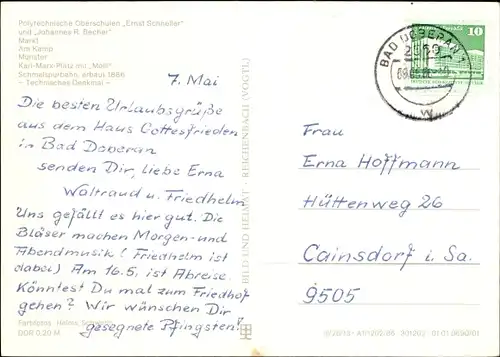 Polytechnische Oberschulen „Ernst Schneller"
und „Johannes R. Becher"
Markt
Am Kamp
Münster
Karl-Marx-Platz mit „Molli"
Schmalspurbahn, erbaut 1886
– Technisches Denkmal –
7. Mai
Die besten Urlaubsgrüße
aus dem Haus Gottesfrieden
in Bad Doberan
senden Dir, liebe Erna
Waltraud u. Friedhelm
Uns gefällt es hier gut. Die
Bläser machen Morgen- und
Abendmusik! (Friedhelm ist
dabei) Am 16.5. ist Abreise.
Könntest Du mal zum Friedhof
gehen? Wir wünschen Dir
gesegnete Pfingsten!
Farbfotos
DDR 0,20 M
BILD UND HEIMAT · REICHENBACH (VOGTL)
BAD DOBERAN 1
10
Frau
Erna Hoffmann
Hüttenweg 26
Cainsdorf i. Sa.
9505